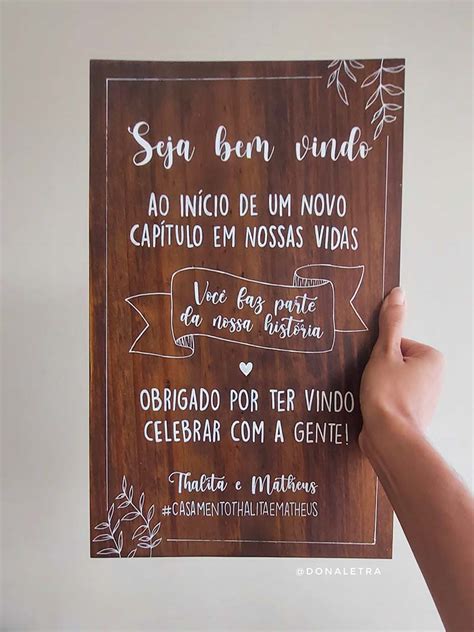 Seja bem vindo
AO INÍCIO DE UM NOVO
CAPÍTULO EM NOSSAS VIDAS
Você faz parte
da nossa história
OBRIGADO POR TER VINDO
CELEBRAR COM A GENTE!
Thalita e Matheus
#CASAMENTOTHALITAEMATHEUS
@DONALETRA